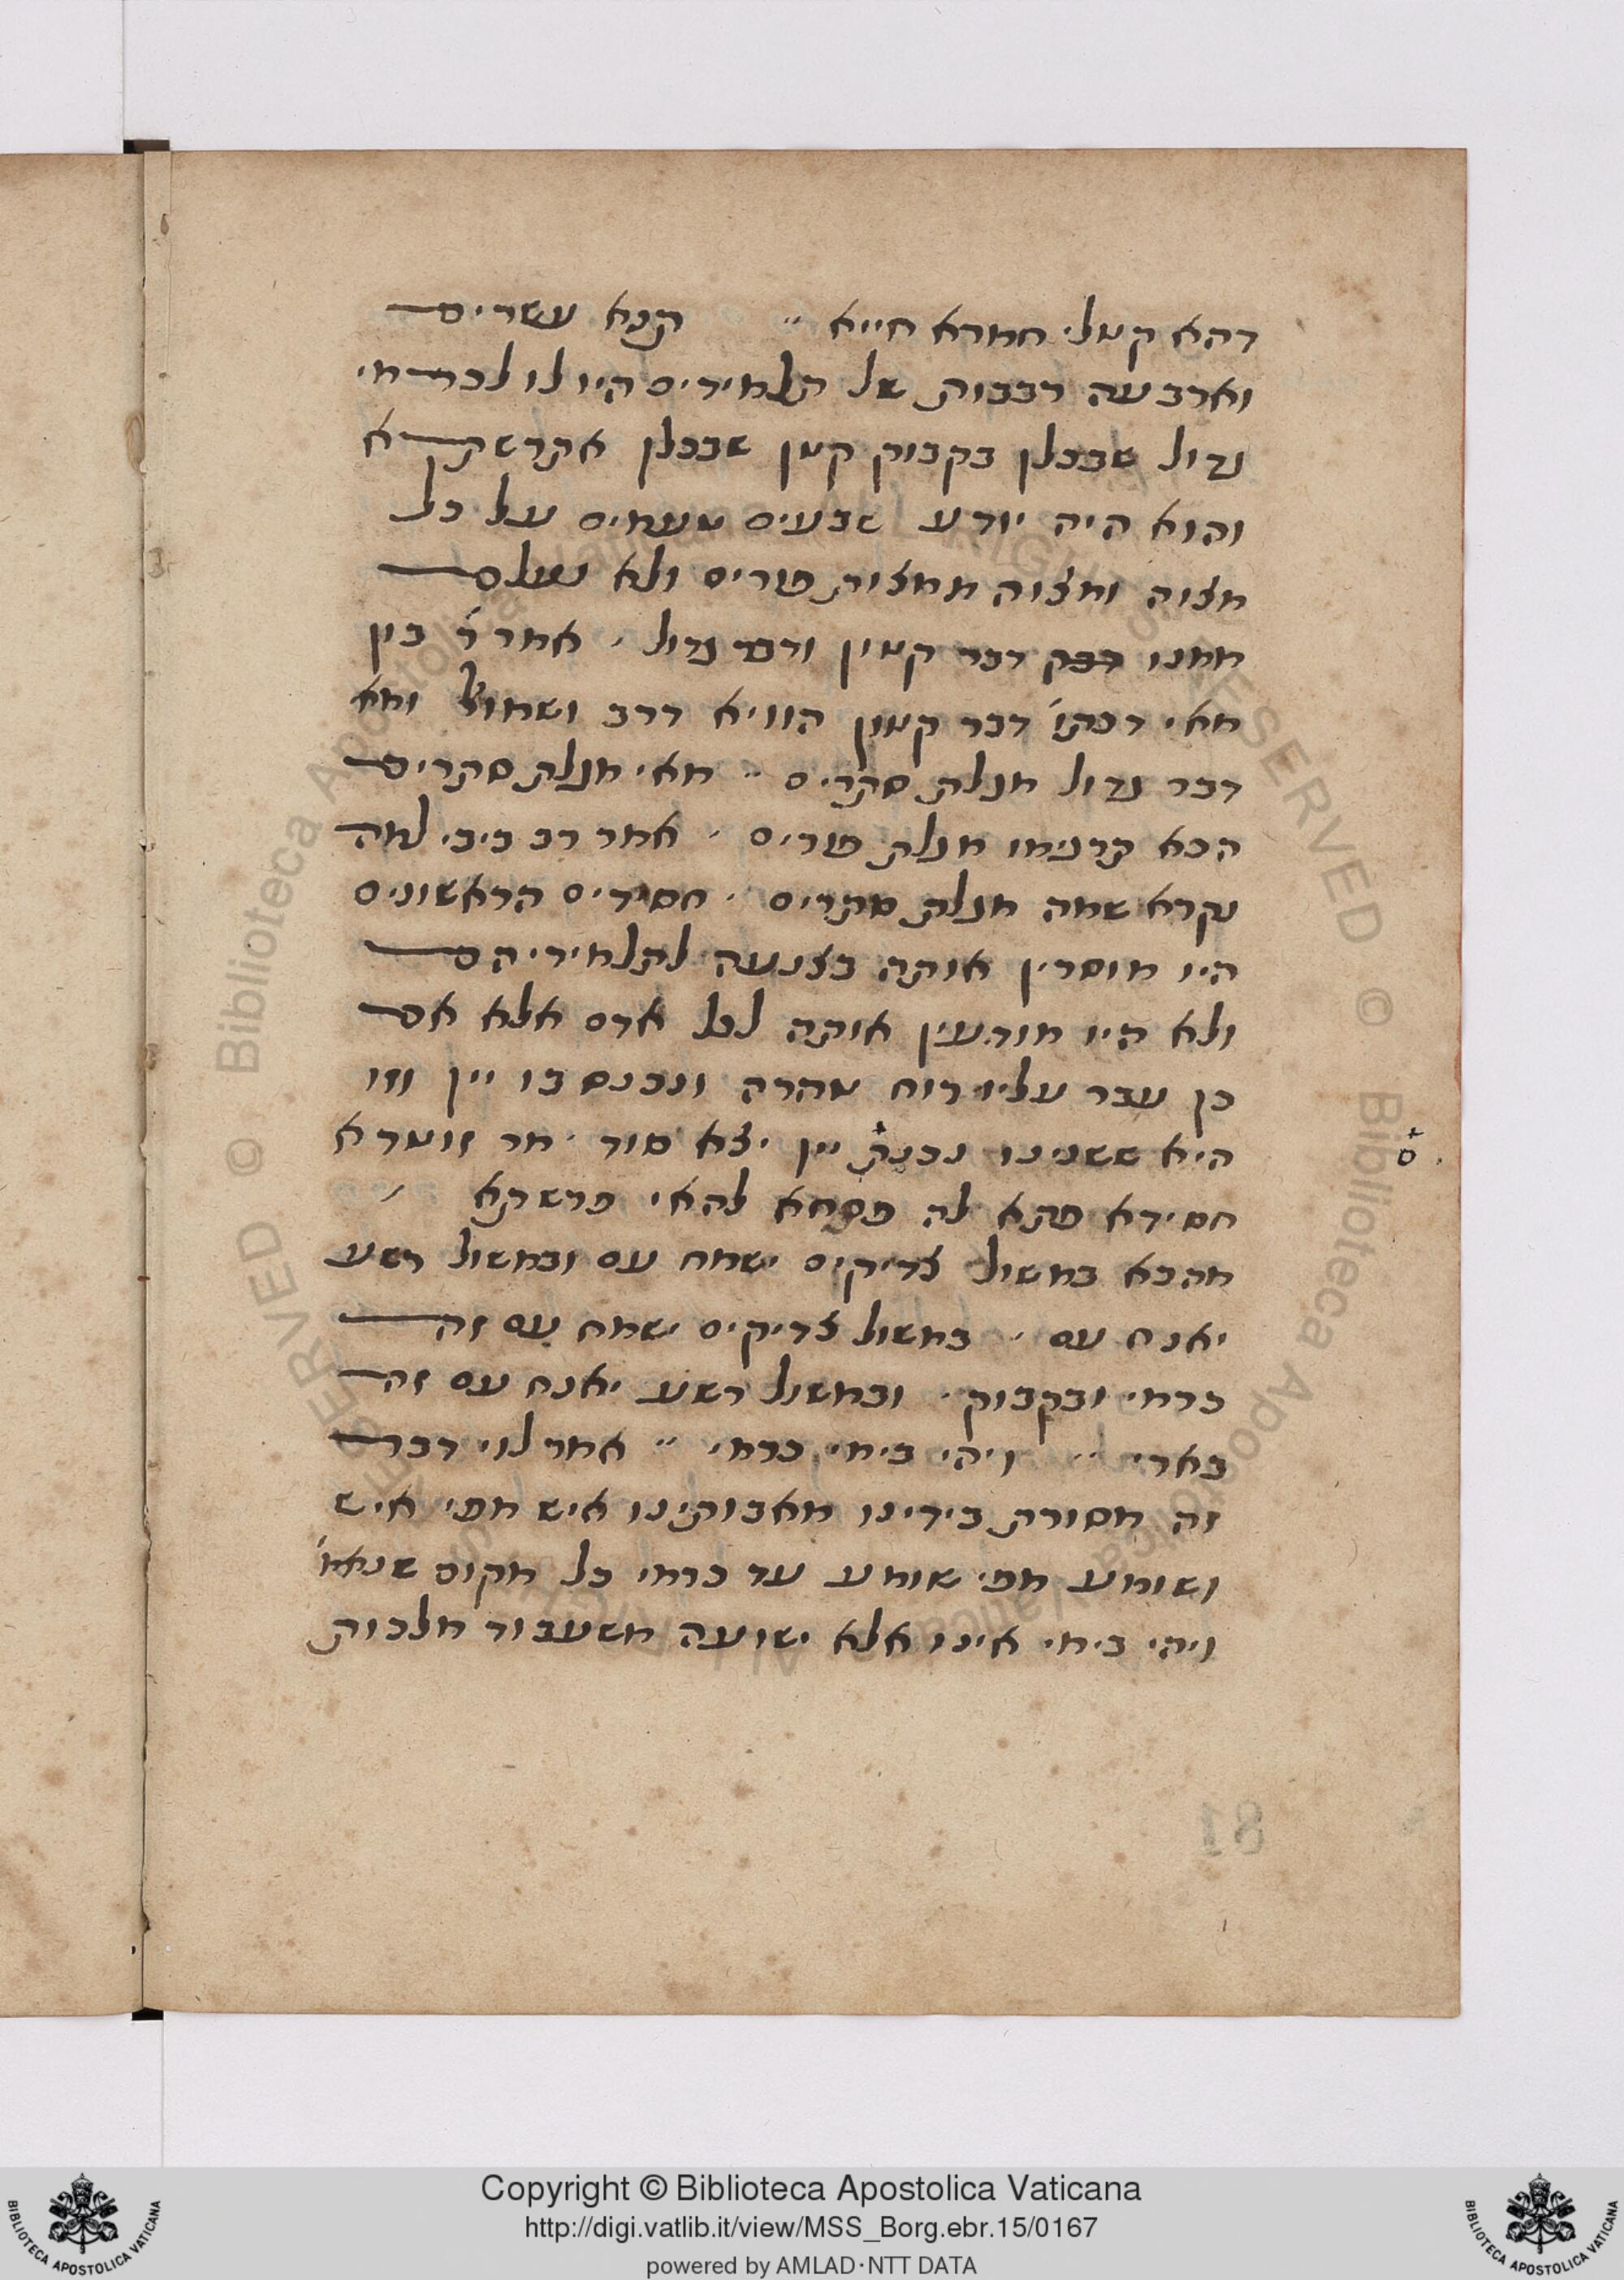 דהא קטלי חמרא חייא ״ תנא עשרים
וארבעה רבבות של תלמידים היו לו לכרמי
גדול שבכלן בקבוק קטן שבכלן אקרשתא
והוא היה יודע שבעים טעמים על כל
מצוה ומצוה ממצות פורים ולא נעלם
ממנו דבק דבר קטון ודבר גדול ׳ אמר ר׳ בון
מאי דכתי׳ דבר קטון הוויא דרב ושמואל ומא
דבר גדול מגלת סתרים ״ מאי מגלת סתרים
הכא קרנימו מגלת פורים ׳ אמר רב ביבי למה
נקרא שמה מגלת סתרים ׳ חסידים הראשונים
היו מוסרין אותה בצנעה לתלמידיהם
ולא היו מודעין אותה לכל אדם אלא אם
כן עבר עליו רוח טהרה ונכנס בו יין וזו
היא ששנינו נכנס יין יצא סוד ׳ מר זוטרא
חסידא פתא לה פתחא להאי פרשתא ׳
מהכא במשול צדיקים ישמח עם ובמשול רשע
יאנח עם ׳ במשול צדיקים ישמח עם זה
כרמי ובקבוק ׳ ובמשול רשע יאנח עם זה
בארי ״ ויהי בימי כרמי ״ אמר לוי דבר
זה מסורת בידינו מאבותינו איש מפי איש
ושומע מפי שומע עד כרמי כל מקום שנאמ׳
ויהי בימי אינו אלא ישועה משעבוד מלכות
ס
81
Copyright © Biblioteca Apostolica Vaticana
http://digi.vatlib.it/view/MSS_Borg.ebr.15/0167
powered by AMLAD·NTT DATA